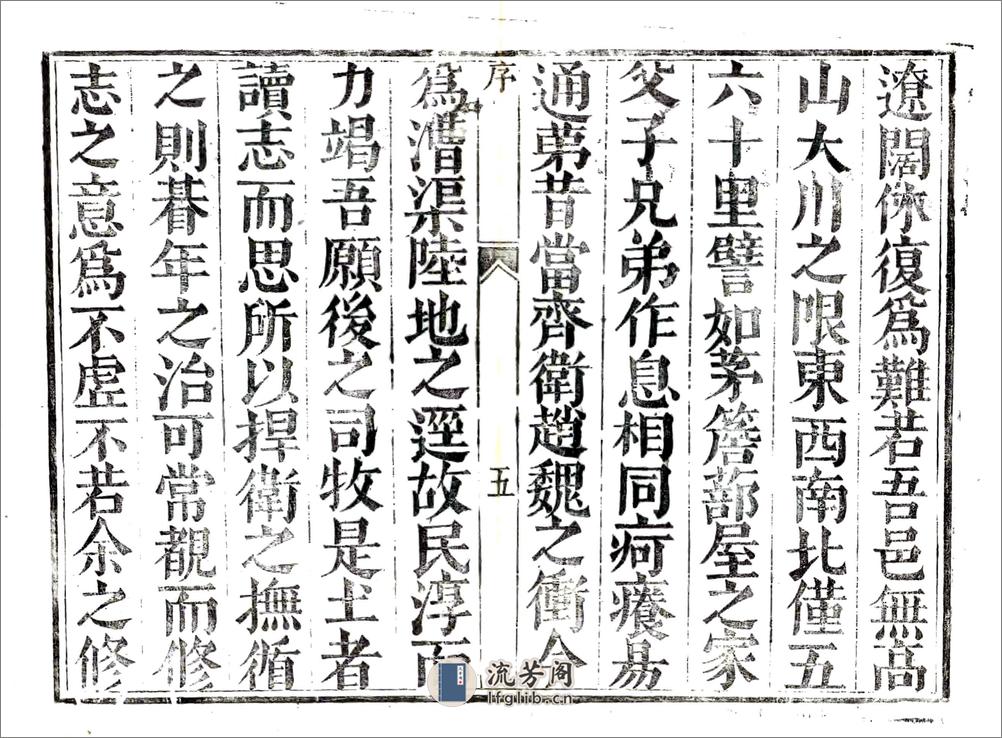 遼闊復爲難若吾邑無高
山大川之限東西南北僅五
六十里譬如茅簷蔀屋之家
父子兄弟作息相同疴癢易
通苐昔當齊衛趙魏之衝今
序 五
爲漕渠陸地之逕故民淳而
力竭吾願後之司牧是土者
讀志而思所以捍衛之撫循
之則朞年之治可常覩而修
志之意爲不虗不若余之修
流芳阁
lfglib.cn